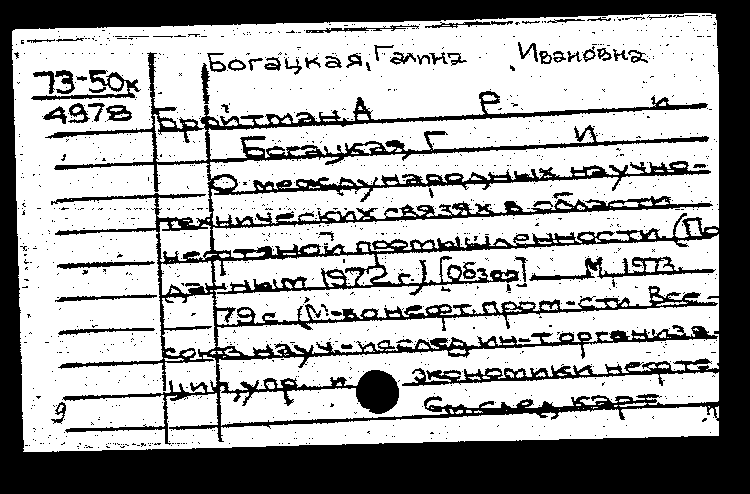 Богацкая, Галина Ивановна
73-50к
4978
Бройтман, А Р и
Богацкая, Г И
О международных научно-
технических связях в области
нефтяной промышленности. (По
данным 1972 г.). [Обзор]. М., 1973.
79 с. (М-во нефт. пром-сти. Все-
союз. науч.-исслед. ин-т организа-
ции, упр. и экономики нефте-
См. след. карт.
9